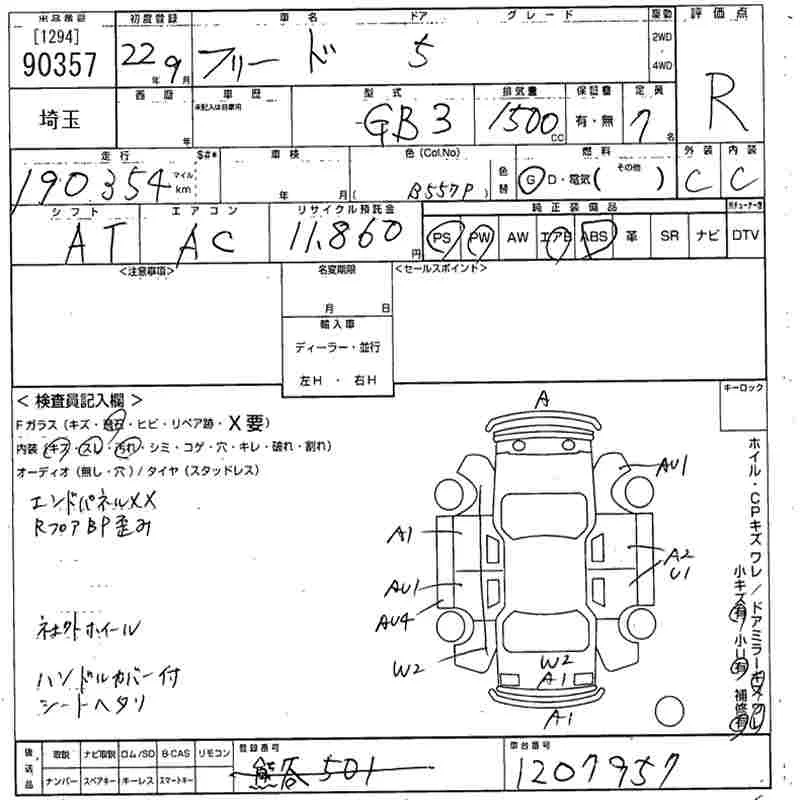 出品番号 初度登録 車名 ドア グレード 駆動 評価点
[1294]
90357 22年 9月 フリード 5 2WD・4WD R
埼玉 西暦 年 車歴 未記入は自家用 型式 GB3 排気量 1500CC 保証書 有・無 定員 7名
走行 S#* 車検 色(Col.No) 色替 燃料 外装 内装
190.354 マイル km 年 月 ( B557P ) G D・電気( その他 ) C C
シフト エアコン リサイクル預託金 純正装備品
AT AC 11,860円 PS PW AW エアB ABS 革 SR ナビ DTV
<注意事項> 名変期限 <セールスポイント>
月 日
輸入車
ディーラー・並行
左H ・ 右H
キーロック
< 検査員記入欄 >
Fガラス(キズ・飛石・ヒビ・リペア跡・X要)
内装(キズ・スレ・汚れ・シミ・コゲ・穴・キレ・破れ・割れ)
オーディオ(無し・穴)/タイヤ(スタッドレス)
エンドパネルXX
RフロアBP歪み
ハンドルカバー付
シートヘタリ
A
AU1
A1
A2
U1
AU1
AU4
W2
W2
A1
A1
ホイル・CPキズ ワレ/ドアミラーキズ ワレ
小キズ有 小U有 補修有
後送品 取説 ナビ取説 ロム/SD B-CAS リモコン 登録番号 車台番号
ナンバー スペアキー キーレス スマートキー 501 1207957